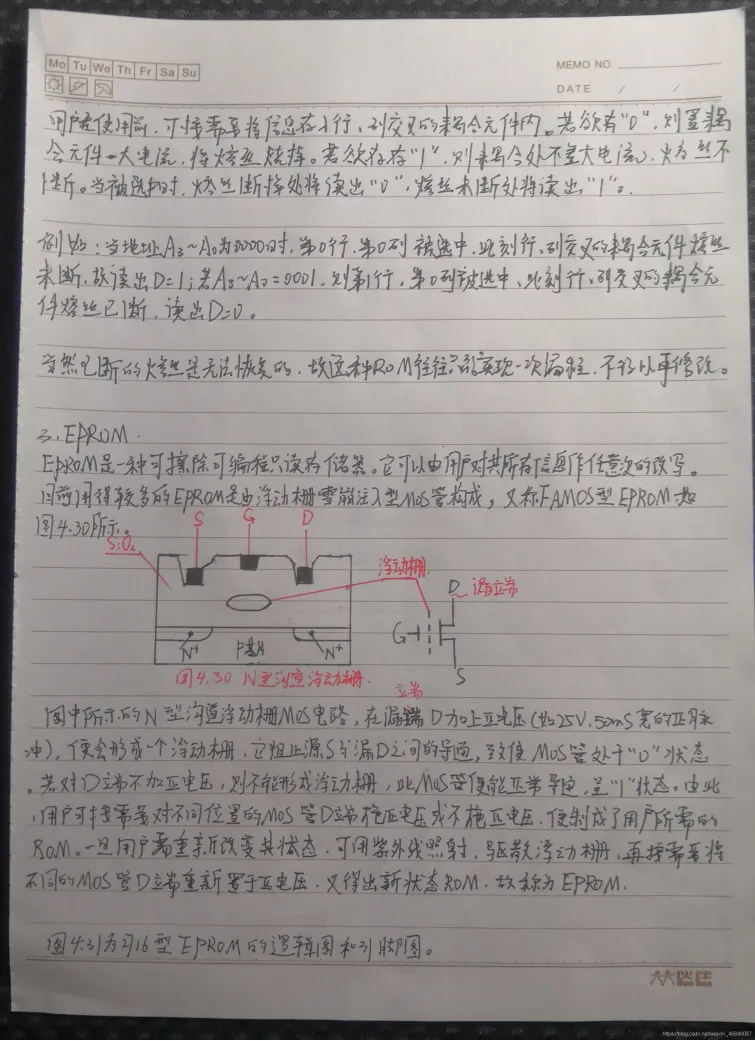 Mo Tu We Th Fr Sa Su
MEMO NO.
DATE / /
用户在使用前，可按需要将信息存入行、列交叉的耦合元件内。若欲存"0"，则置耦
合元件一大电流，将熔丝烧掉。若欲存"1"，则耦合处不置大电流，熔丝不
断。当被选中时，熔丝断掉处将读出"0"，熔丝未断处将读出"1"。
例如：当地址A₃~A₀为0000时，第0行，第0列被选中，此刻行、列交叉的耦合元件熔丝
未断，故读出D=1；若A₃~A₀=0001，则第1行，第0列被选中，此刻行、列交叉的耦合元
件熔丝已断，读出D=0。
当然已断的熔丝是无法恢复的，故这种ROM往往只能实现一次编程，不得以再修改。
三、EPROM.
EPROM是一种可擦除可编程只读存储器。它可以由用户对其所有信息作任意次的改写。
目前用得较多的EPROM是由浮动栅雪崩注入型MOS管构成，又称FAMOS型EPROM如
图4.30所示。
SiO₂
S
G
D
浮动栅
N+
P基片
N+
D
漏端
G
S
图4.30 N型沟道浮动栅.
图中所示的N型沟道浮动栅MOS电路，在漏端D加上正电压(如25V,50mS宽的正脉
冲)，便会形成一个浮动栅，它阻止源S与漏D之间的导通，致使MOS管处于"0"状态
。若对D端不加正电压，则不能形成浮动栅，此MOS管便能正常导通，呈"1"状态。由此
，用户可按需要对不同位置的MOS管D端施正电压或不施正电压，便制成了用户所需的
ROM。一旦用户需重新改变其状态，可用紫外线照射，驱散浮动栅，再按需要将
不同的MOS管D端重新置于正电压，又得出新状态ROM，故称为EPROM.
图4.31为2716型EPROM的逻辑图和引脚图。
https://blog.csdn.net/weixin_45840087